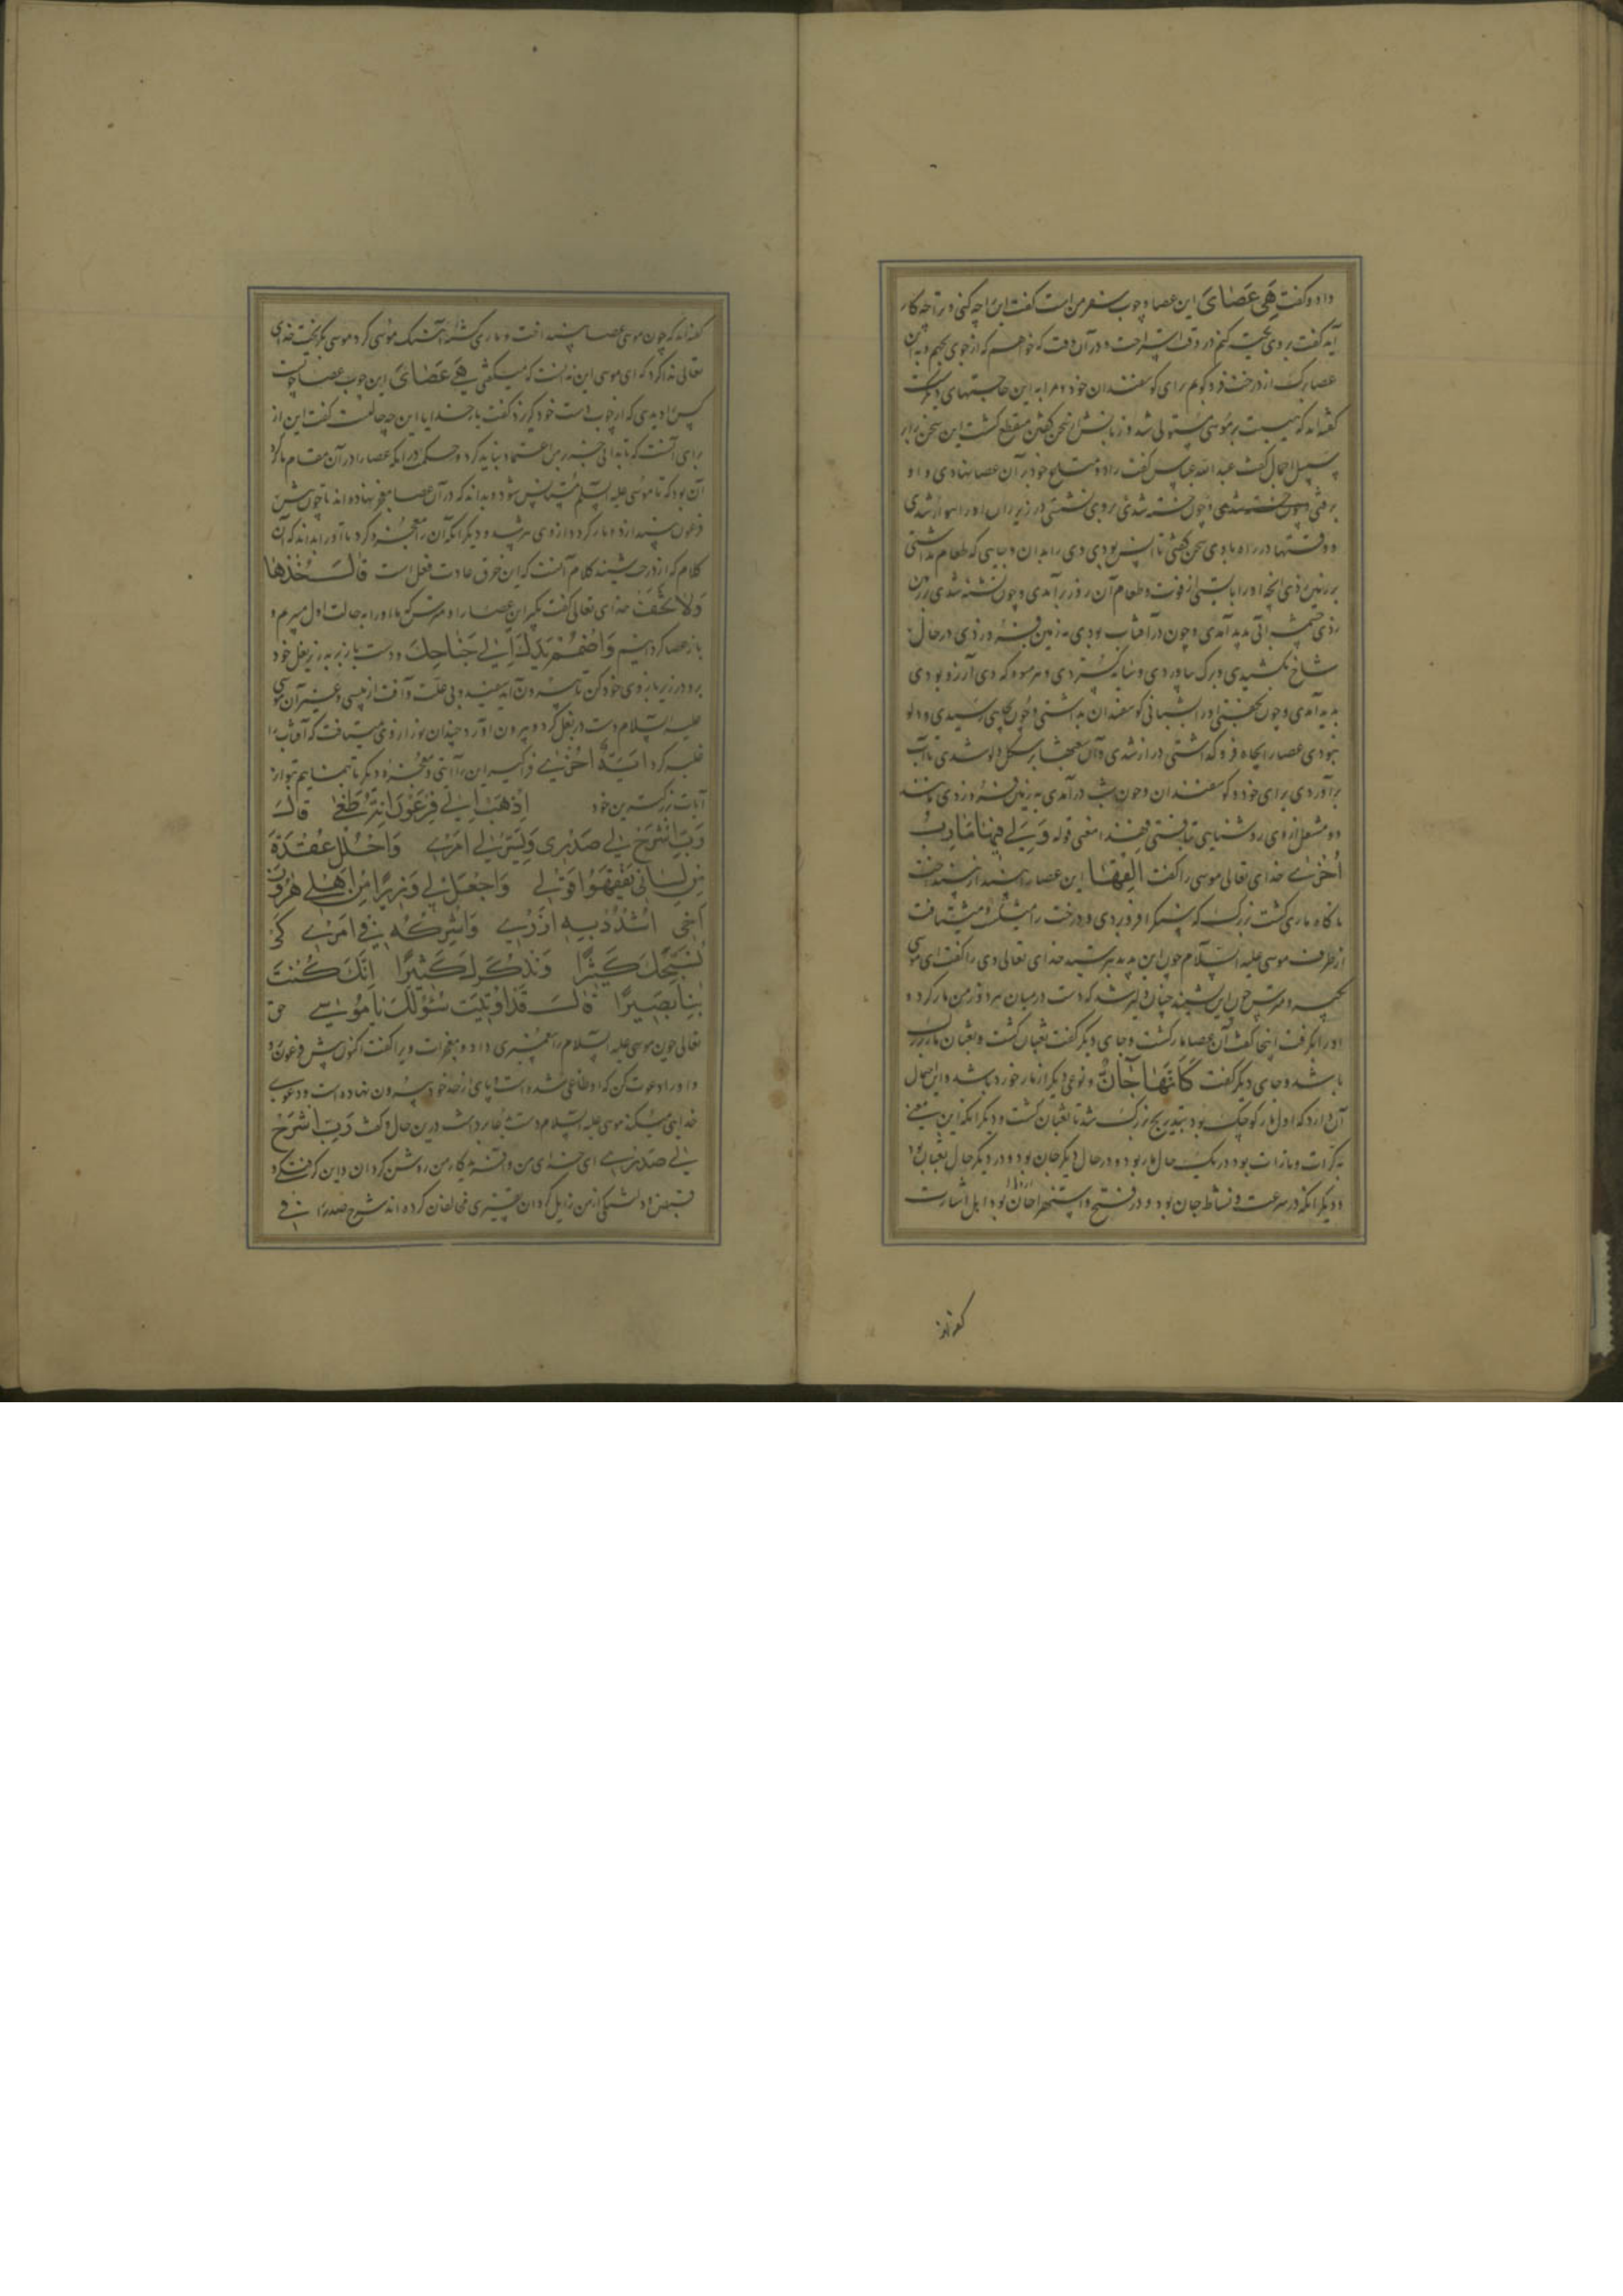 داد و گفت هِیَ عَصٰایَ این عصا و چوب سفر من است گفت این را چه کنی و ترا چه کار
آید گفت بر وی تکیه کنم در وقت استراحت و در آن وقت که خواهم که از جوی بجهم و به این
عصا برگ از درخت فرو کوبم برای گوسفندان خود و مرا به این حاجتهای دیگرست
گفته‌اند که هیبت بر موسی مستولی شد و زبانش از سخن گفتن منقطع گشت این سخن را بر
سبیل اجمال گفت عبد الله عباس گفت زاد و متاع خود بر آن عصا نهادی و او
برفتی و چون خسته شدی بر وی نشستی در زیر ران او راهوار شدی
و وقتها در راه با وی سخن گفتی تا انس بودی وی را بدان و جایی که طعام نداشتی
بر زمین زدی آنچه او را بایستی از قوت و طعام آن روز برآمدی و چون تشنه شدی بر زمین
زدی چشمه آبی پدید آمدی و چون در آفتاب بودی به زمین فرو زدی در حال
شاخ بکشیدی و برگ بیاوردی و سایه گستردی و هر میوه که وی آرزو بودی
پدید آمدی و چون بخفتی او را شبانی گوسفندان بداشتی و چون بچاهی رسیدی و دلو
نبودی عصا را بچاه فرو گذاشتی دراز شدی و آن شعبهاء بر شکل دلو شدی تا آب
برآوردی برای خود و گوسفندان و چون شب درآمدی به زمین فرو زدی مانند
دو مشعل از وی روشنایی تافتی فهذا معنی قوله وَ لِیَ فِیهَا مَاٰرِبُ
اُخْریٰ خدای تعالی موسی را گفت اَلْقِهَا این عصا را بینداز بینداخت
ناگاه ماری گشت بزرگ که سنگ را فرو بردی و درخت را میشکست و میشتافت
از طرف موسی علیه السّلام چون این بدید بترسید خدای تعالی وی را گفت ای موسی
بگیر و مترس چون این بشنید چنان دلیر شد که دست در میان هر دو زفر من مار کرد و
او را بگرفت اینجا گفت آن عصا مار گشت و جای دیگر گفت ثعبان گشت و ثعبان مار بزرگ
باشد و جای دیگر گفت کَاَنَّهَا جَانٌّ و نوعی دیگر از مار خورد باشد و این احتمال
آن دارد که اول مار کوچک بود بتدریج بزرگ شد تا ثعبان گشت و دیگر آنکه این معنی
به کرّات و مرّات بود در یک حال مار بود و در حال دیگر جان بود و در دیگر حال ثعبان بود
و دیگر آنکه در سرعت و نشاط جان بود و در
گفته‌اند
گفته‌اند که چون موسی عصا بینداخت و ماری گشت و آهنگ موسی کرد موسی بگریخت خدای
تعالی ندا کرد که ای موسی این نه آنست که میگفتی هِیَ عَصٰایَ این چوب عصا
خدایا این چه حالتست گفت این از
برای آنست که تا بدانی جز بر من اعتماد نباید کرد و حکمت در آنکه عصا را در آن مقام مار کرد
آن بود که تا موسی علیه السّلم مستأنس شود و بداند که در آن عصا معجز نهاده‌اند تا چون پیش
فرعون بیندازد و مار گردد از وی نترسد و دیگر آنکه آن را معجزه کرد تا او را بداند که آن
کلام که از درخت شنید کلام آنست که این خرق عادت فعل است قَالَ خُذْهَا
وَلَا تَخَفْ خدای تعالی گفت بگیر این عصا را و مترس که ما او را به حالت اول میبریم و
باز عصا گردانیم وَاضْمُمْ یَدَكَ اِلیٰ جَنَاحِكَ و دست باز بر به زیر بغل خود
بر و در زیر بازوی خود کن تا بیرون آید سفید و بی علّت و آفت از پیسی و غیر آن موسی
علیه السّلام دست در بغل کرد و بیرون آورد چندان نور از وی میتافت که آفتاب را
غلبه کرد اٰیَةً اُخْریٰ فراگیر این را آیتی و معجزه دیگر تا بنماییم تو را از
آیات بزرگترین خود اِذْهَبْ اِلیٰ فِرْعَوْنَ اِنَّهُ طَغیٰ قَالَ
رَبِّ اشْرَحْ لِی صَدْرِی وَیَسِّرْ لِی اَمْرِی وَاحْلُلْ عُقْدَةً
مِنْ لِسَانِی یَفْقَهُوا قَوْلِی وَاجْعَلْ لِی وَزِیرًا مِنْ اَهْلِی هٰرُونَ
اَخِی اشْدُدْ بِهِ اَزْرِی وَاَشْرِکْهُ فِی اَمْرِی کَیْ
نُسَبِّحَكَ کَثِیرًا وَنَذْکُرَكَ کَثِیرًا اِنَّكَ کُنْتَ
بِنَا بَصِیرًا قَالَ قَدْ اُوتِیتَ سُؤْلَكَ یَا مُوسیٰ حق
تعالی چون موسی علیه السّلام را پیغمبری داد و معجزات ویرا گفت اکنون پیش فرعون رو
و او را دعوت کن که او طاغی شده است و پای از حد خود بیرون نهاده است و دعوی
خدایی میکند موسی علیه السّلام دست بدعا برداشت درین حال و گفت رَبِّ اشْرَحْ
لِی صَدْرِی ای خدای من دل من روشن گردان و این گرفتگی و
قبض و دلتنگی از من زایل گردان شرح صدر را فی